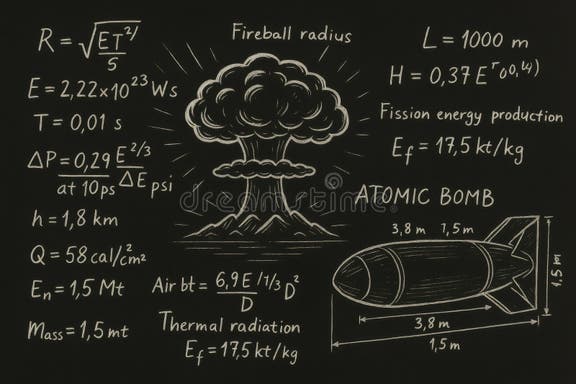 R = √ET²/ / 5
Fireball radius
L = 1000 m
E = 2,22×10²³ Ws
H = 0,37 E
T = 0,01 s
Fission energy production
E_f = 17,5 kt/kg
ΔP = 0,29 E^2/3 / ΔE psi
at 10 ps
h = 1,8 km
ATOMIC BOMB
3,8 m 1,5 m
Q = 58 cal/cm²
1,5 m
E_n = 1,5 Mt
Air bt = 6,9 E /1/3 D² / D
3,8 m
1,5 m
Mass = 1,5 mt
Thermal radiation
E_f = 17,5 kt/kg
dreamstime